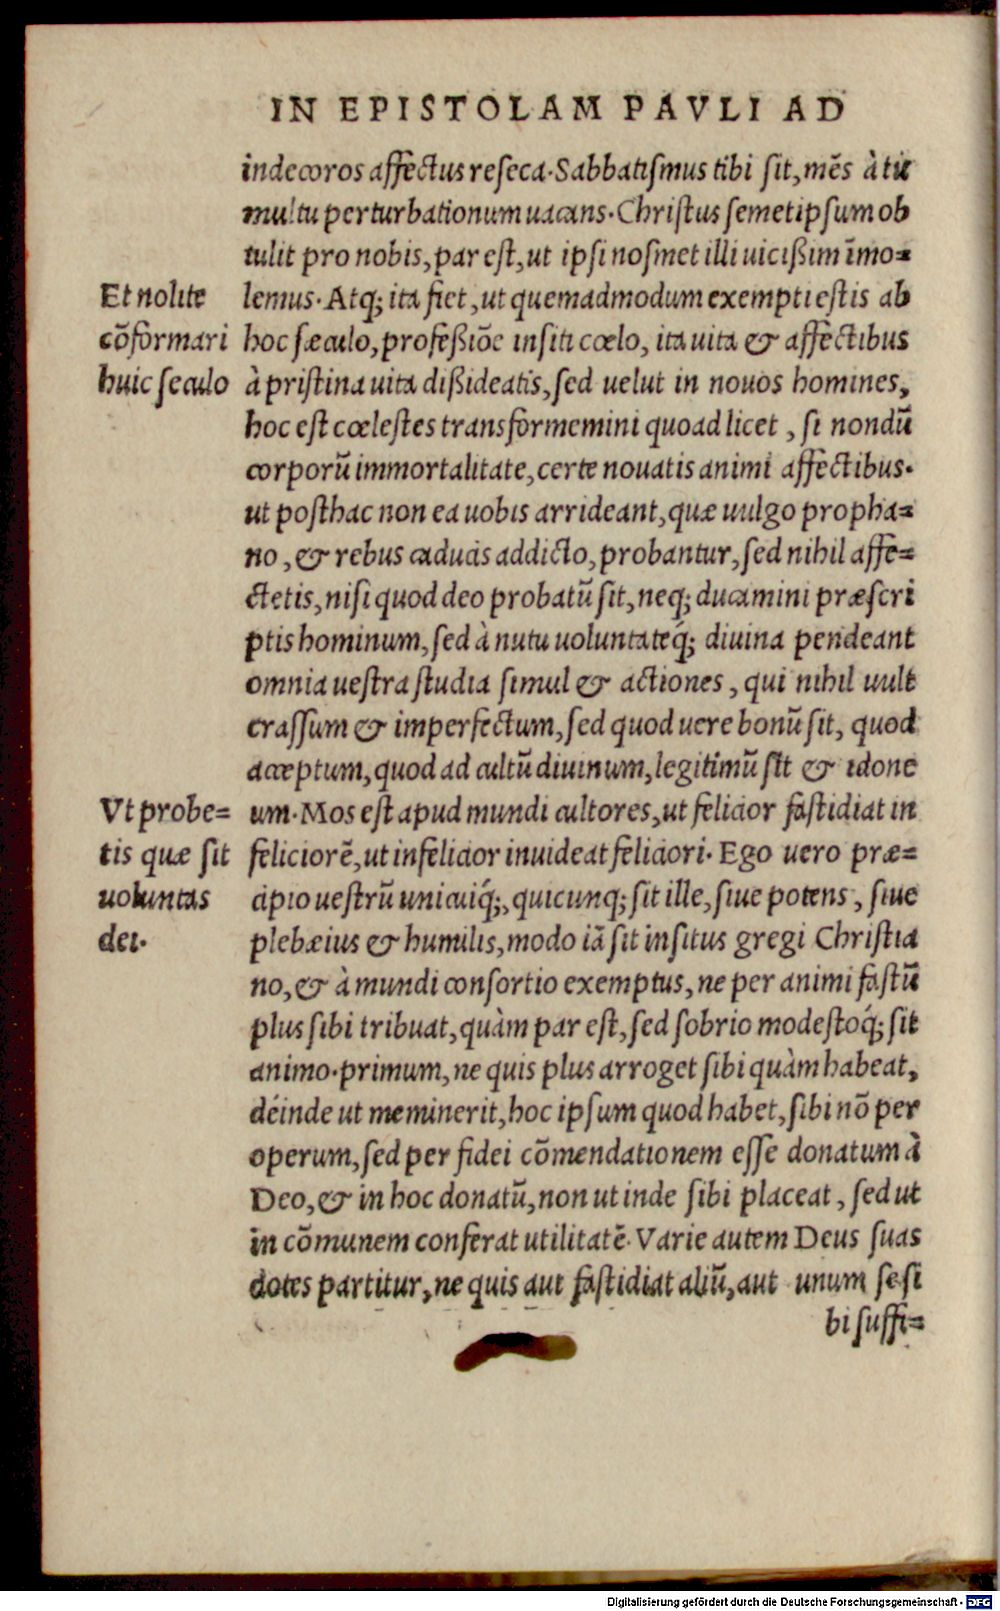 IN EPISTOLAM PAVLI AD
indecoros affectus reseca. Sabbatismus tibi sit, mẽs à tu
multu perturbationum uacans. Christus semetipsum ob
tulit pro nobis, par est, ut ipsi nosmet illi uicißim ĩmo=
Et nolite
cõformari
huic seculo
lemus. Atq; ita fiet, ut quemadmodum exempti estis ab
hoc sæculo, profeßiõe insiti cœlo, ita uita & affectibus
à pristina uita dißideatis, sed uelut in nouos homines,
hoc est cœlestes transformemini quoad licet, si nondũ
corporũ immortalitate, certe nouatis animi affectibus.
ut posthac non ea uobis arrideant, quæ uulgo propha=
no, & rebus caducis addicto, probantur, sed nihil affe=
ctetis, nisi quod deo probatũ sit, neq; ducamini præscri
ptis hominum, sed à nutu uoluntateq́; diuina pendeant
omnia uestra studia simul & actiones, qui nihil uult
crassum & imperfectum, sed quod uere bonũ sit, quod
acceptum, quod ad cultũ diuinum, legitimũ sit & idone
Vt probe=
tis quæ sit
uoluntas
dei.
um. Mos est apud mundi cultores, ut felicior fastidiat in
feliciorẽ, ut infelicior inuideat feliciori. Ego uero præ=
cipio uestrũ unicuiq́;, quicunq; sit ille, siue potens, siue
plebæius & humilis, modo iã sit insitus gregi Christia
no, & à mundi consortio exemptus, ne per animi fastũ
plus sibi tribuat, quàm par est, sed sobrio modestoq́; sit
animo. primum, ne quis plus arroget sibi quàm habeat,
déinde ut meminerit, hoc ipsum quod habet, sibi nõ per
operum, sed per fidei cõmendationem esse donatum à
Deo, & in hoc donatũ, non ut inde sibi placeat, sed ut
in cõmunem conferat utilitatẽ. Varie autem Deus suas
dotes partitur, ne quis aut fastidiat aliũ, aut unum se si
bi suffi=
Digitalisierung gefördert durch die Deutsche Forschungsgemeinschaft - DFG